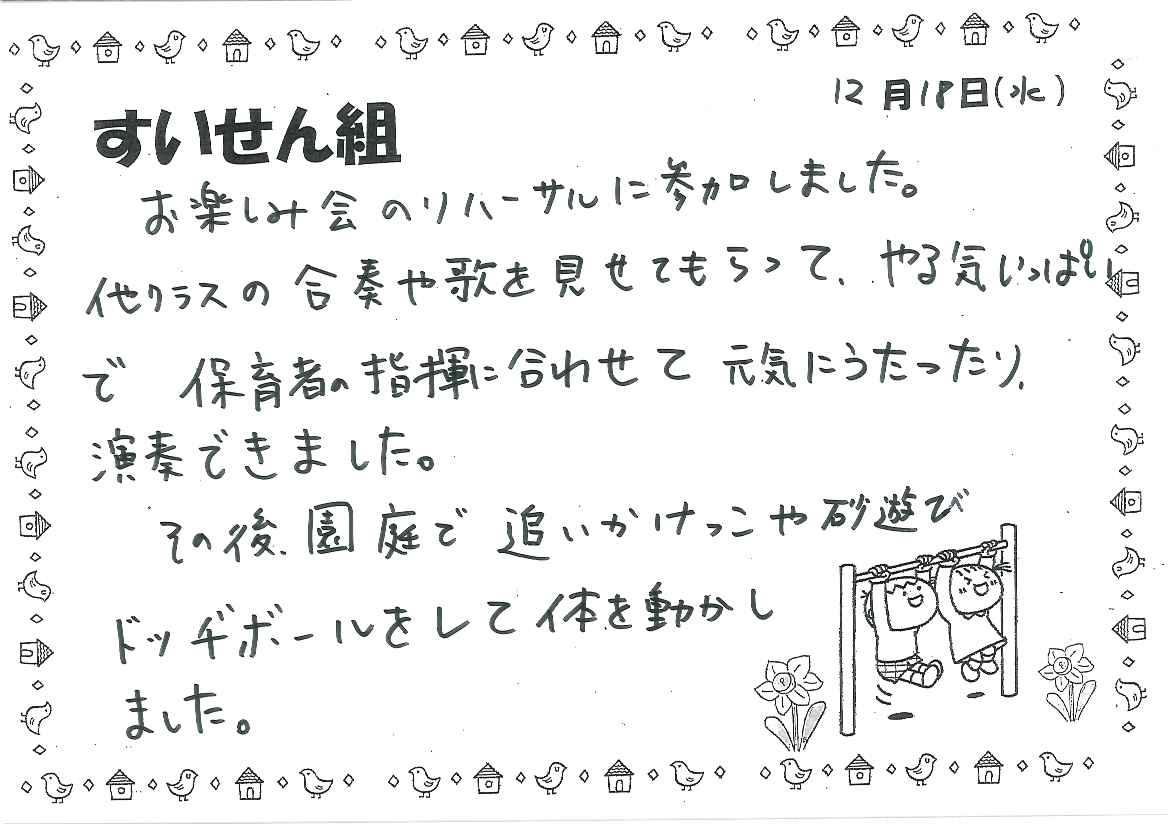 12月18日(水)
すいせん組
お楽しみ会のリハーサルに参加しました。
他クラスの合奏や歌を見せてもらって、やる気いっぱい
で 保育者の指揮に合わせて 元気にうたったり、
演奏できました。
その後、園庭で 追いかけっこや砂遊び
ドッヂボールをして体を動かし
ました。